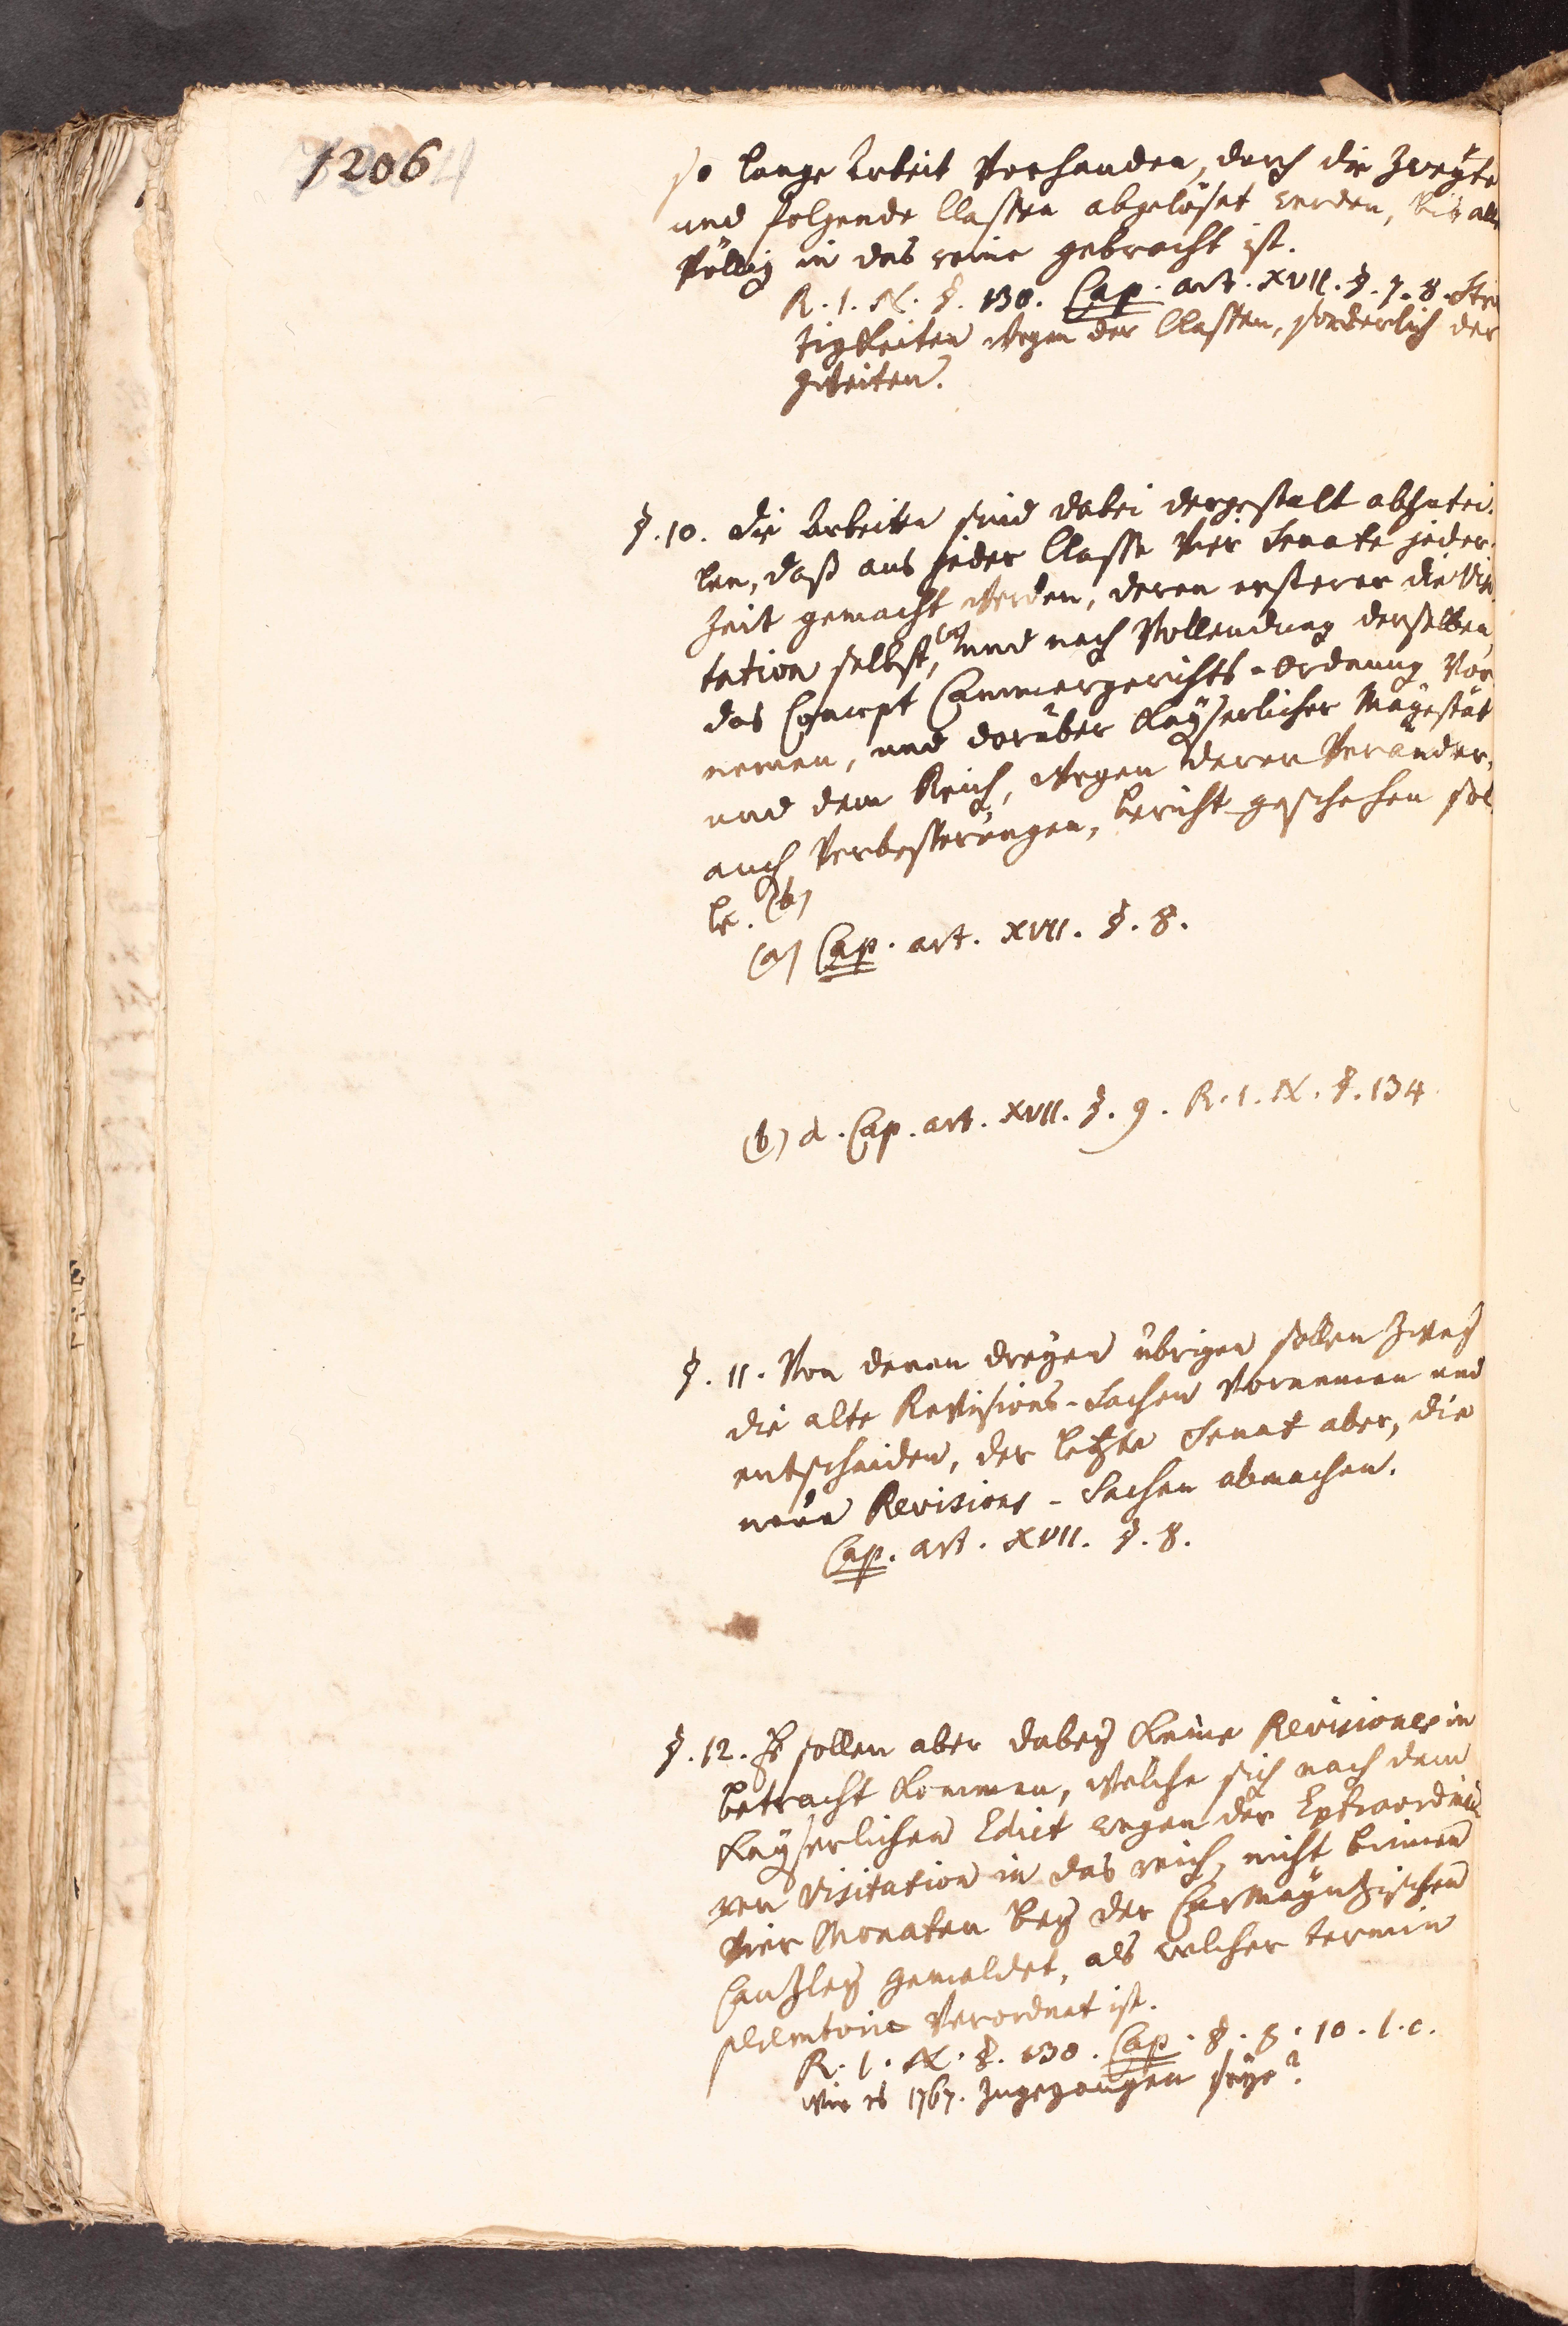 1206
so lange Arbeit Vorhanden, durch die Zweÿte
und folgende Classen abgelöset werden, bis alles
Völlig in das reine gebracht ist.
R. I. N. §. 130. Cap. art. XVII. §. 7. 8. Strei
tigkeiten wegen der Classen, sonderlich der
zweiten.
§. 10. die Arbeiten sind dabei dergestalt abzutei-
len, daß aus jeder Classe Vier Senate jeder-
zeit gemacht werden, deren ersterer die Visi-
tation selbst, (a) und nach Vollendung derselben
das Concept Cammergerichts-Ordnung Vor
nemen, und darüber Kaÿserlicher Mayestät
und dem Reich, wegen derer Veränder-
auch Verbesserungen, bericht geschehen sol
le. (b)
(a) Cap. art. XVII. §. 8.
(b) d. Cap. art. XVII. §. 9. R. I. N. §. 134
§. 11. Von denen dreÿen übrigen sollen zweÿ
die alte Revisions-Sachen Vornemen und
entscheiden, der letzte Senat aber, die
neüe Revisions-Sachen abmachen.
Cap. art. XVII. §. 8.
§. 12. Es sollen aber dabeÿ keine Revisiones in
betracht kommen, welche sich nach dem
Kaÿserlichen Edict wegen der Extraordinai
ren Visitation in das reich, nicht binnen
Vier Monaten beÿ der CurMaÿntzischen
Canzleÿ gemeldet, als welcher termin
Verordnet ist.
R. I. N. §. 130. Cap. §. 8. 10. l. c.
wie es 1767. zugegangen seÿe?